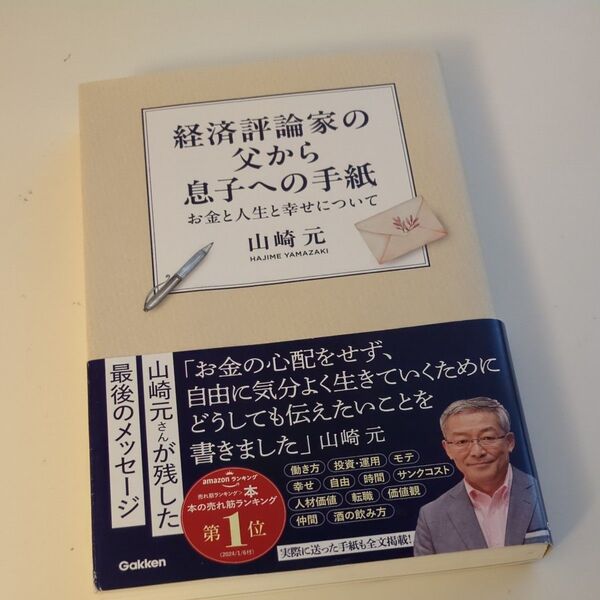 経済評論家の
父から
息子への手紙
お金と人生と幸せについて
山崎 元
HAJIME YAMAZAKI
山崎元さんが残した
最後のメッセージ
「お金の心配をせず、
自由に気分よく生きていくために
どうしても伝えたいことを
書きました」山崎 元
働き方 投資・運用 モテ
幸せ 自由 時間 サンクコスト
人材価値 転職 価値観
仲間 酒の飲み方
amazonランキング
売れ筋ランキング>本
本の売れ筋ランキング
第1位
(2024/1/6付)
実際に送った手紙も全文掲載!
Gakken